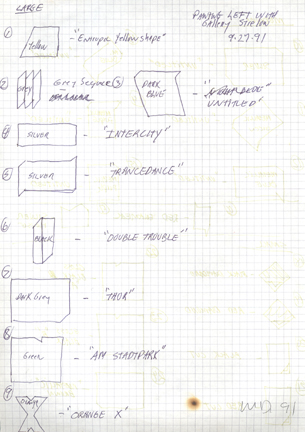 LARGE
PAINTING LEFT WITH
GALLERY
9-27-91
① Yellow - "Entropic Yellow shape"
② GREY Grey Sequence ③ DARK BLUE - UNTITLED
④ SILVER - "INTERCITY"
⑤ SILVER - "TRANCEDANCE"
⑥ BLACK - "DOUBLE TROUBLE"
⑦ DARK Grey - "THOR"
⑧ Green - "AM STADTPARK"
⑨ ORANGE - "ORANGE X"
MD 91